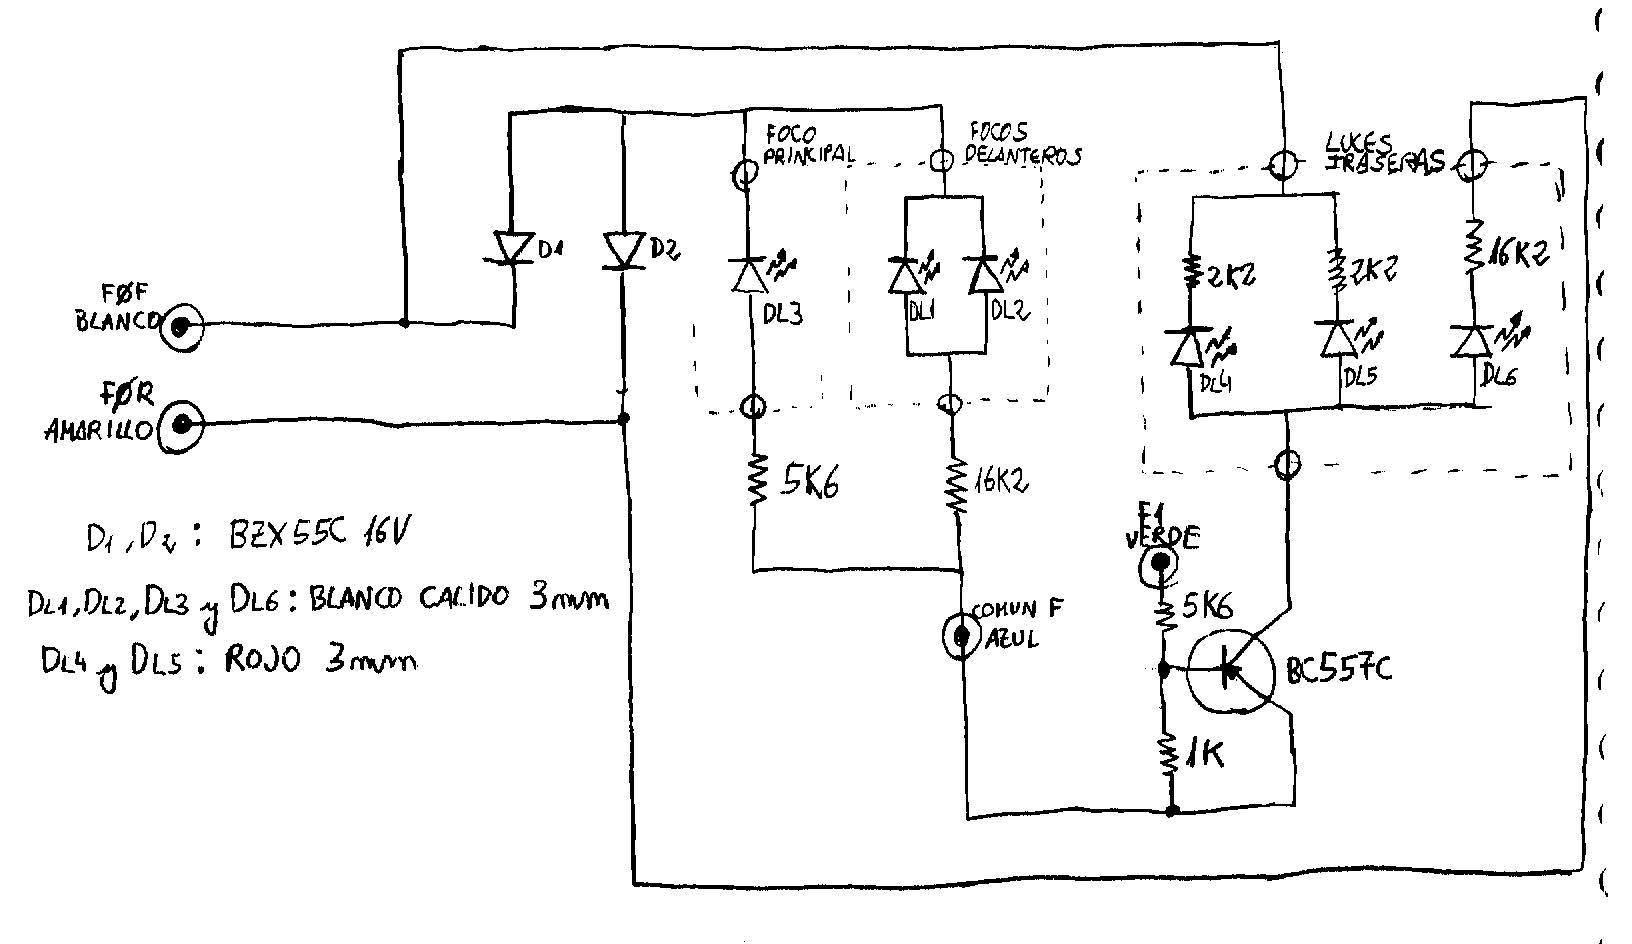 FOCO
PRINCIPAL
FOCOS
DELANTEROS
LUCES
TRASERAS
D1
D2
DL3
DL1
DL2
2K2
2K2
16K2
DL4
DL5
DL6
FØF
BLANCO
FØR
AMARILLO
5K6
16K2
F1
VERDE
5K6
COMUN F
AZUL
BC557C
1K
D1, D2: BZX55C 16V
DL1, DL2, DL3 y DL6: BLANCO CALIDO 3mm
DL4 y DL5: ROJO 3mm